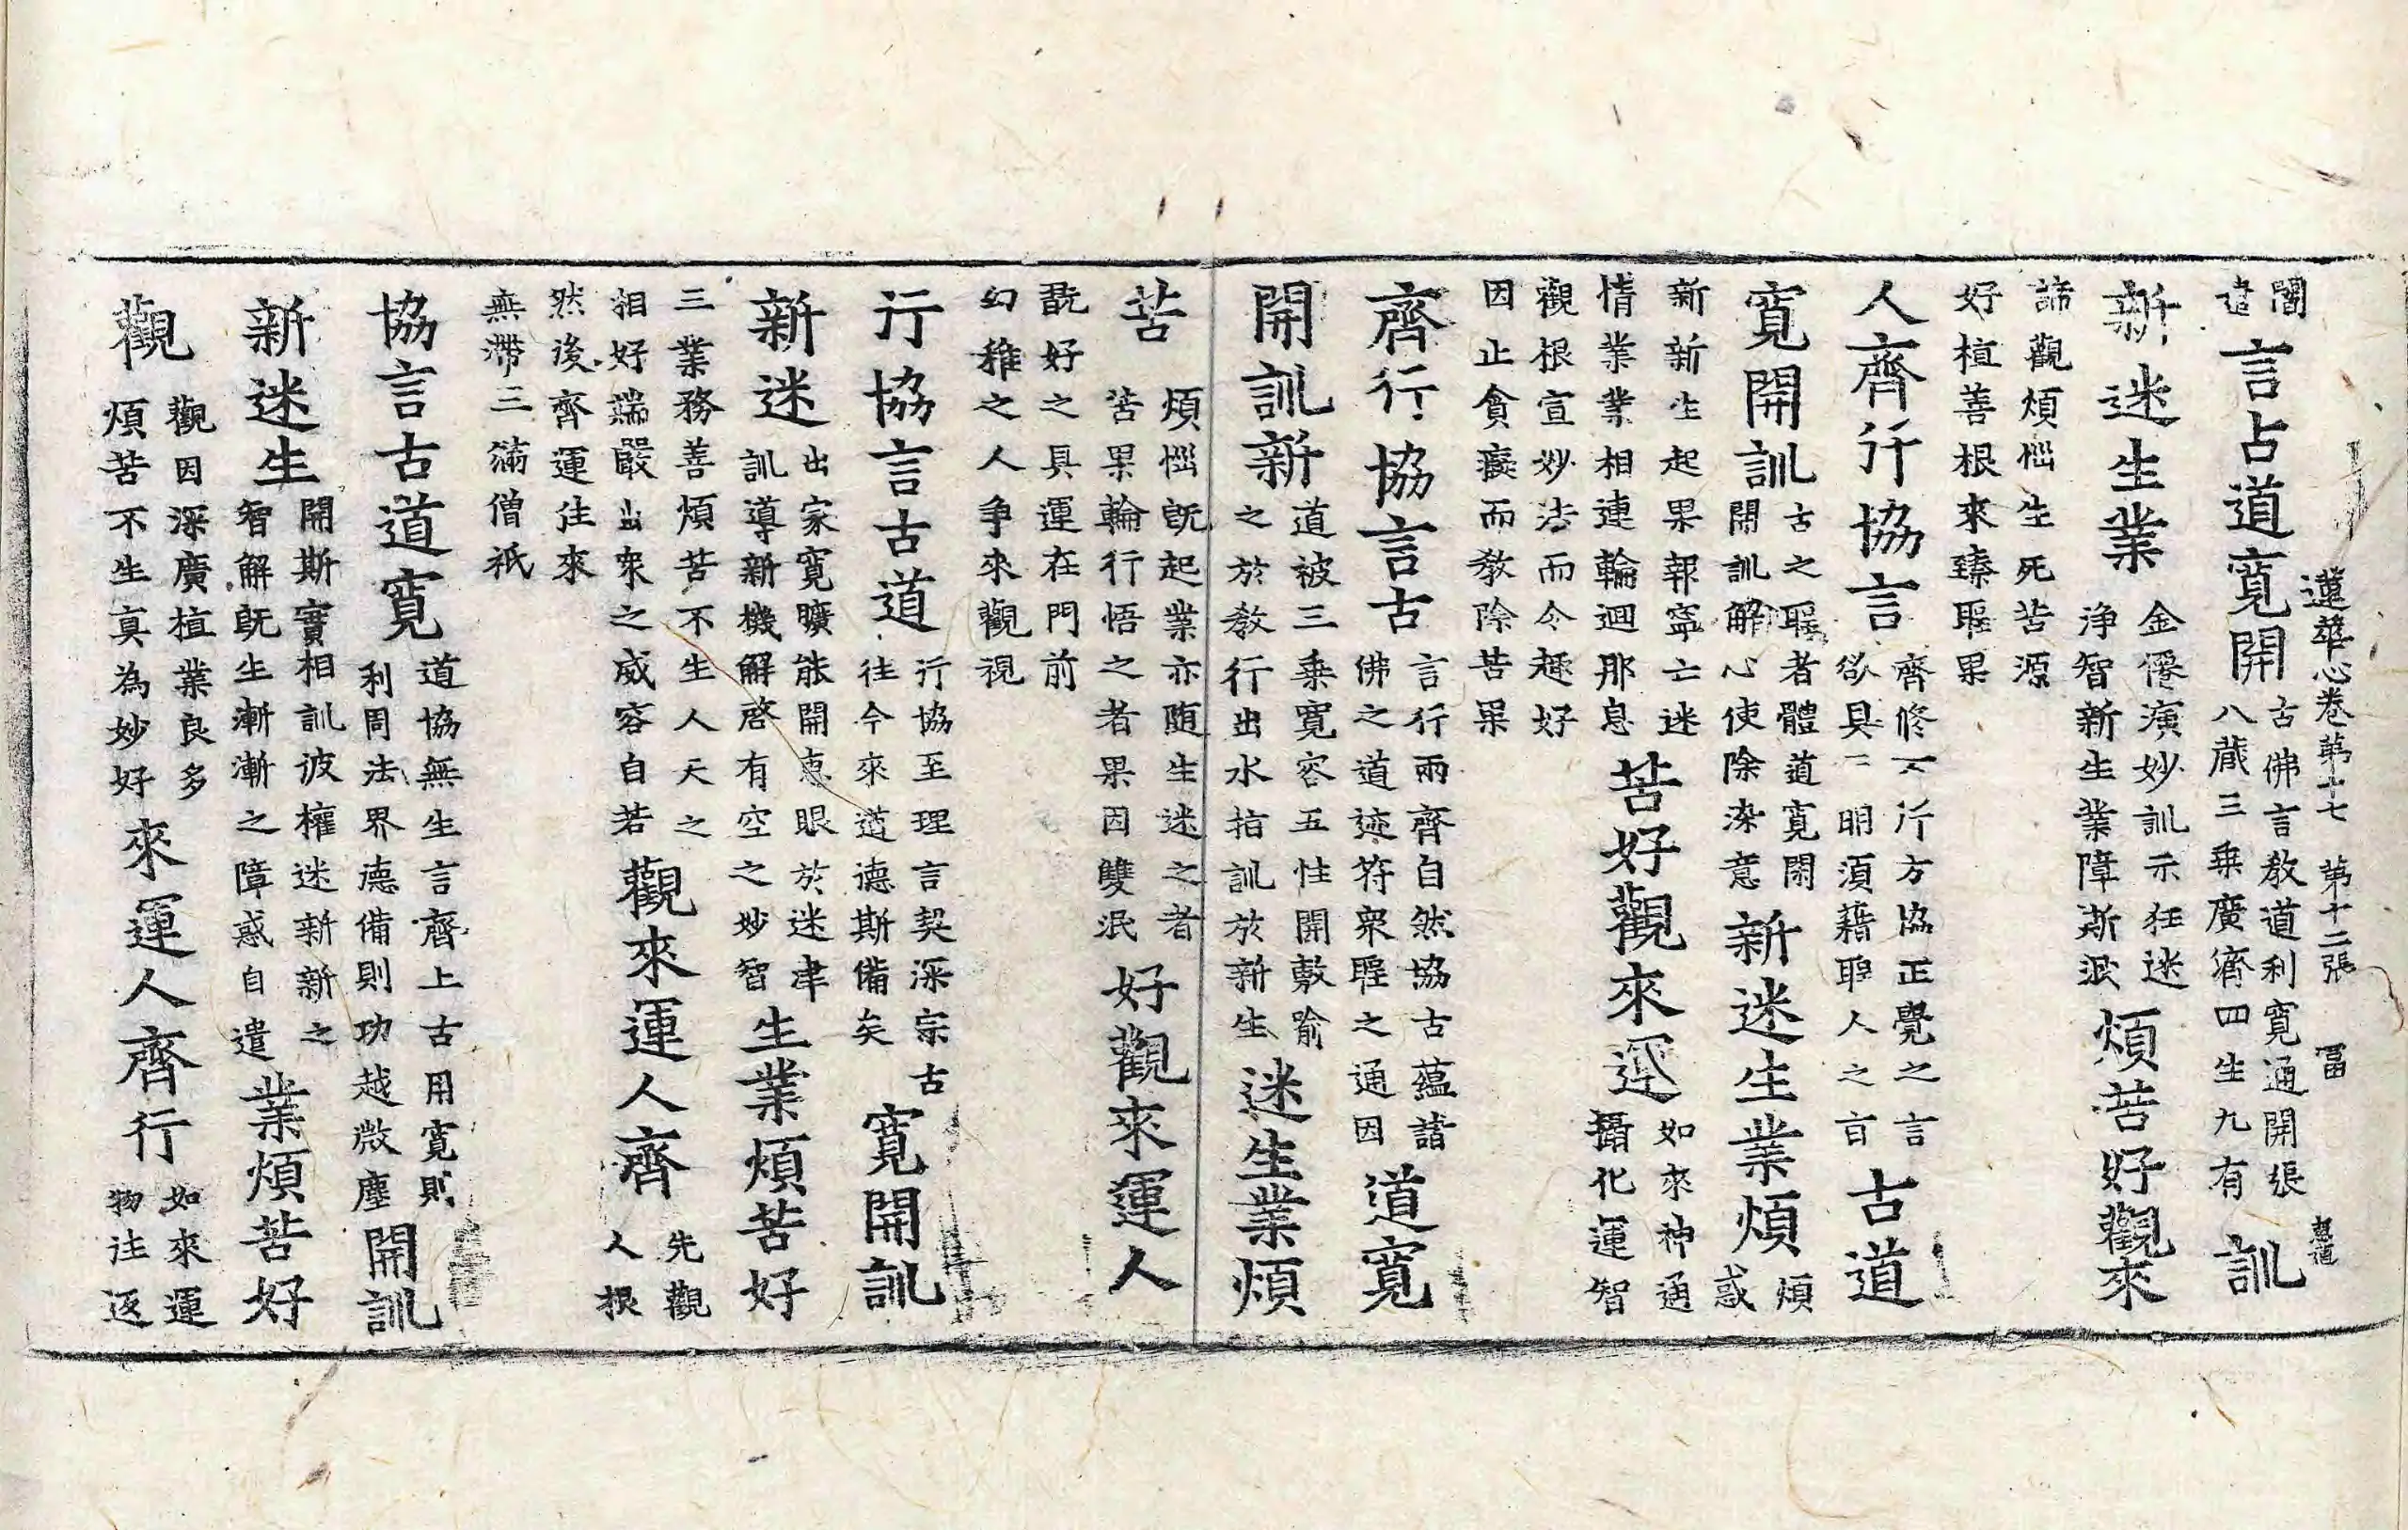 蓮華心卷第十七 第十二張 冨 惠道
闇
遣
言古道寬開
古佛言敎道利寬通開張
八藏三乘廣濟四生九有
訓
新迷生業
金僊演妙訓示狂迷
淨智新生業障斯泯
煩苦好觀來
諦觀煩惱生死苦源
好植善根來臻聖果
人齊行協言
齊修万行方協正覺之言
欲具二明須藉聖人之言
古道
寬開訓
古之聖者體道寬閑
開訓解心使除染意
新迷生業煩
煩
惑
新新生起果報寧亡迷
情業業相連輪迴那息
苦好觀來運
如來神通
攝化運智
觀根宣妙法而令趣好
因止貪癡而敎除苦果
齊行協言古
言行兩齊自然協古蘊諸
佛之道迹符衆聖之通因
道寬
開訓新
道被三乘寬容五性開敷喻
之於敎行出水指訓於新生
迷生業煩
苦
煩惱旣起業亦隨生迷之者
苦果輪行悟之者果因雙泯
好觀來運人
翫好之具運在門前
幻稚之人爭來觀視
行協言古道
行協至理言契深宗古
往今來道德斯備矣
寬開訓
新迷
出家寬曠能開惠眼於迷津
訓導新機解啓有空之妙智
生業煩苦好
三業務善煩苦不生人天之
相好端嚴出衆之威容自若
觀來運人齊
先觀
人根
然後齊運往來
無滯三滿僧祇
協言古道寬
道協無生言齊上古用寬則
利周法界德備則功越微塵
開訓
新迷生
開斯實相訓彼權迷新新之
智解旣生漸漸之障惑自遣
業煩苦好
觀
觀因深廣植業良多
煩苦不生真為妙好
來運人齊行
如來運
物往返